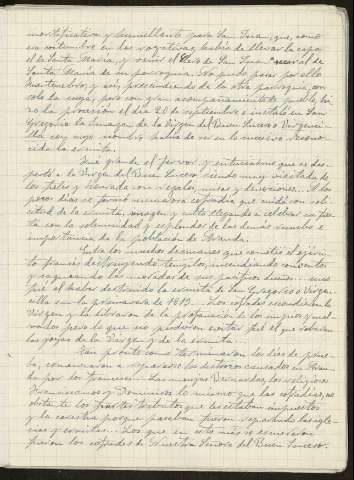 mortificativa y humillante para San Juan, que, como
en setiembre en las rogativas había de llevar la capa
el de Santa María, y venir el Clero de San Juan al
Santa María de su parroquia. No pudo pasar por ello
Martinebro, y así, prescindiendo de la otra parroquia, con
solo la suya, pero con gran acompañamiento de pueblo, hi-
zo la procesión el día 20 de septiembre e instaló en San
Gregorio la Imagen de la Virgen del Buen Suceso o Virgenci-
lla con cuyo nombre había de ser en lo sucesivo recono-
cida la ermita.
Fué grande el fervor y entusiasmo que se des-
pertó a la Virgen del Buen Suceso siendo muy visitada de
los fieles y honrada con regalos, misas y devociones... A los
pocos días se formó numerosa cofradía que cuidó con soli-
citud de la ermita, imagen y culto llegando a celebrar su fies-
ta con la solemnidad y esplendor de las demás de rumbo e
importancia de la población de Aranda.
Entre los muchos desmanes que cometió el ejérci-
to francés destruyendo templos, incendiando conventos
y saqueando las moradas de sus pacíficos dueños,
fué el haber destruido la ermita de San Gregorio o Virgen-
cilla en la primavera de 1813... Los cofrades escondieron la
Virgen y la libraron de la profanación de los impíos y mal-
vados pero lo que no pudieron evitar fué el que robaran
las joyas de la Virgen y de la ermita.
Tan pronto como terminaron los días de prue-
ba, comenzaron a repararse los destrozos causados en Aran-
da por los franceses. Las monjas Bernardas, los religiosos
Franciscanos y Dominicos lo mismo que las cofradías, no
obstante los fuertes tributos que les estaban impuestos
y la carestía porque pasaban fueron reparando las igle-
cias y ermitas. Los que en esto más se esmeraron
fueron los cofrades de Nuestra Señora del Buen Suceso.